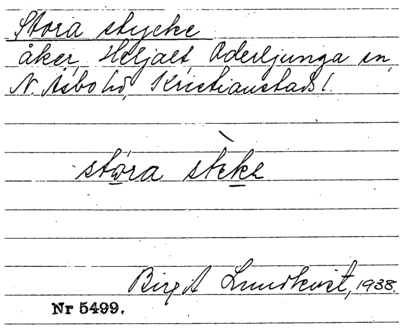 Stora stycke
åker, Heljalt, Oderljunga sn,
N. Åsbo hd, Kristianstads l.
stóra stèke
Birgit Lundkvist, 1938.
Nr 5499.